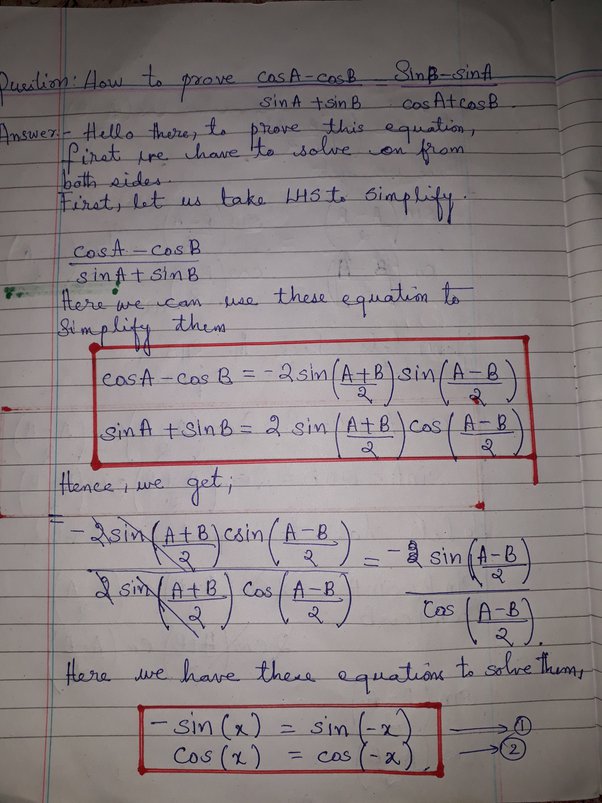 Question: How to prove cosA-cosB/sinA+sinB = SinB-sinA/cosA+cosB.
Answer:- Hello there, to prove this equation,
first we have to solve on from
both sides.
First, let us take LHS to Simplify.
cosA - cosB / sinA + sinB
Here we can use these equation to
Simplify them
cosA-cosB = -2sin(A+B/2)sin(A-B/2)
sinA+sinB = 2 sin(A+B/2)cos(A-B/2)
Hence, we get;
= -2sin(A+B/2)sin(A-B/2) / 2 sin(A+B/2) cos(A-B/2) = - sin(A-B/2) / cos(A-B/2).
Here we have these equations to solve them,
-sin(x) = sin(-x) → ①
cos(x) = cos(-x). → ②